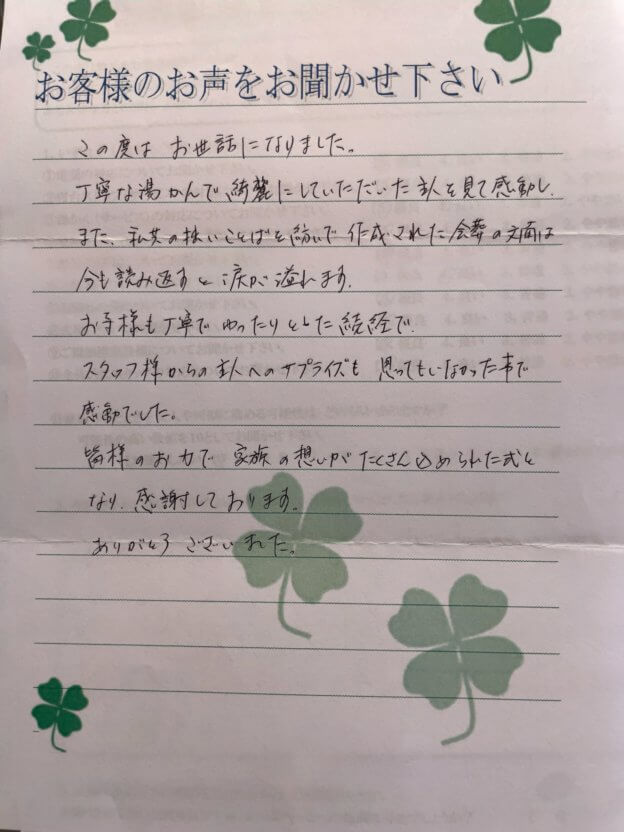 お客様のお声をお聞かせ下さい
この度は お世話になりました。
丁寧な湯かんで、綺麗にしていただいた主人を見て感動し、
また、私共の拙いことばを紡いで 作成された会葬の文面は
今も読み返すと涙が溢れます。
お寺様も丁寧でゆったりとした読経で、
スタッフ様からの主人へのサプライズも 思ってもいなかった事で
感動でした。
皆様のお力で 家族の想いがたくさん込められた式と
なり、感謝しております。
ありがとうございました。